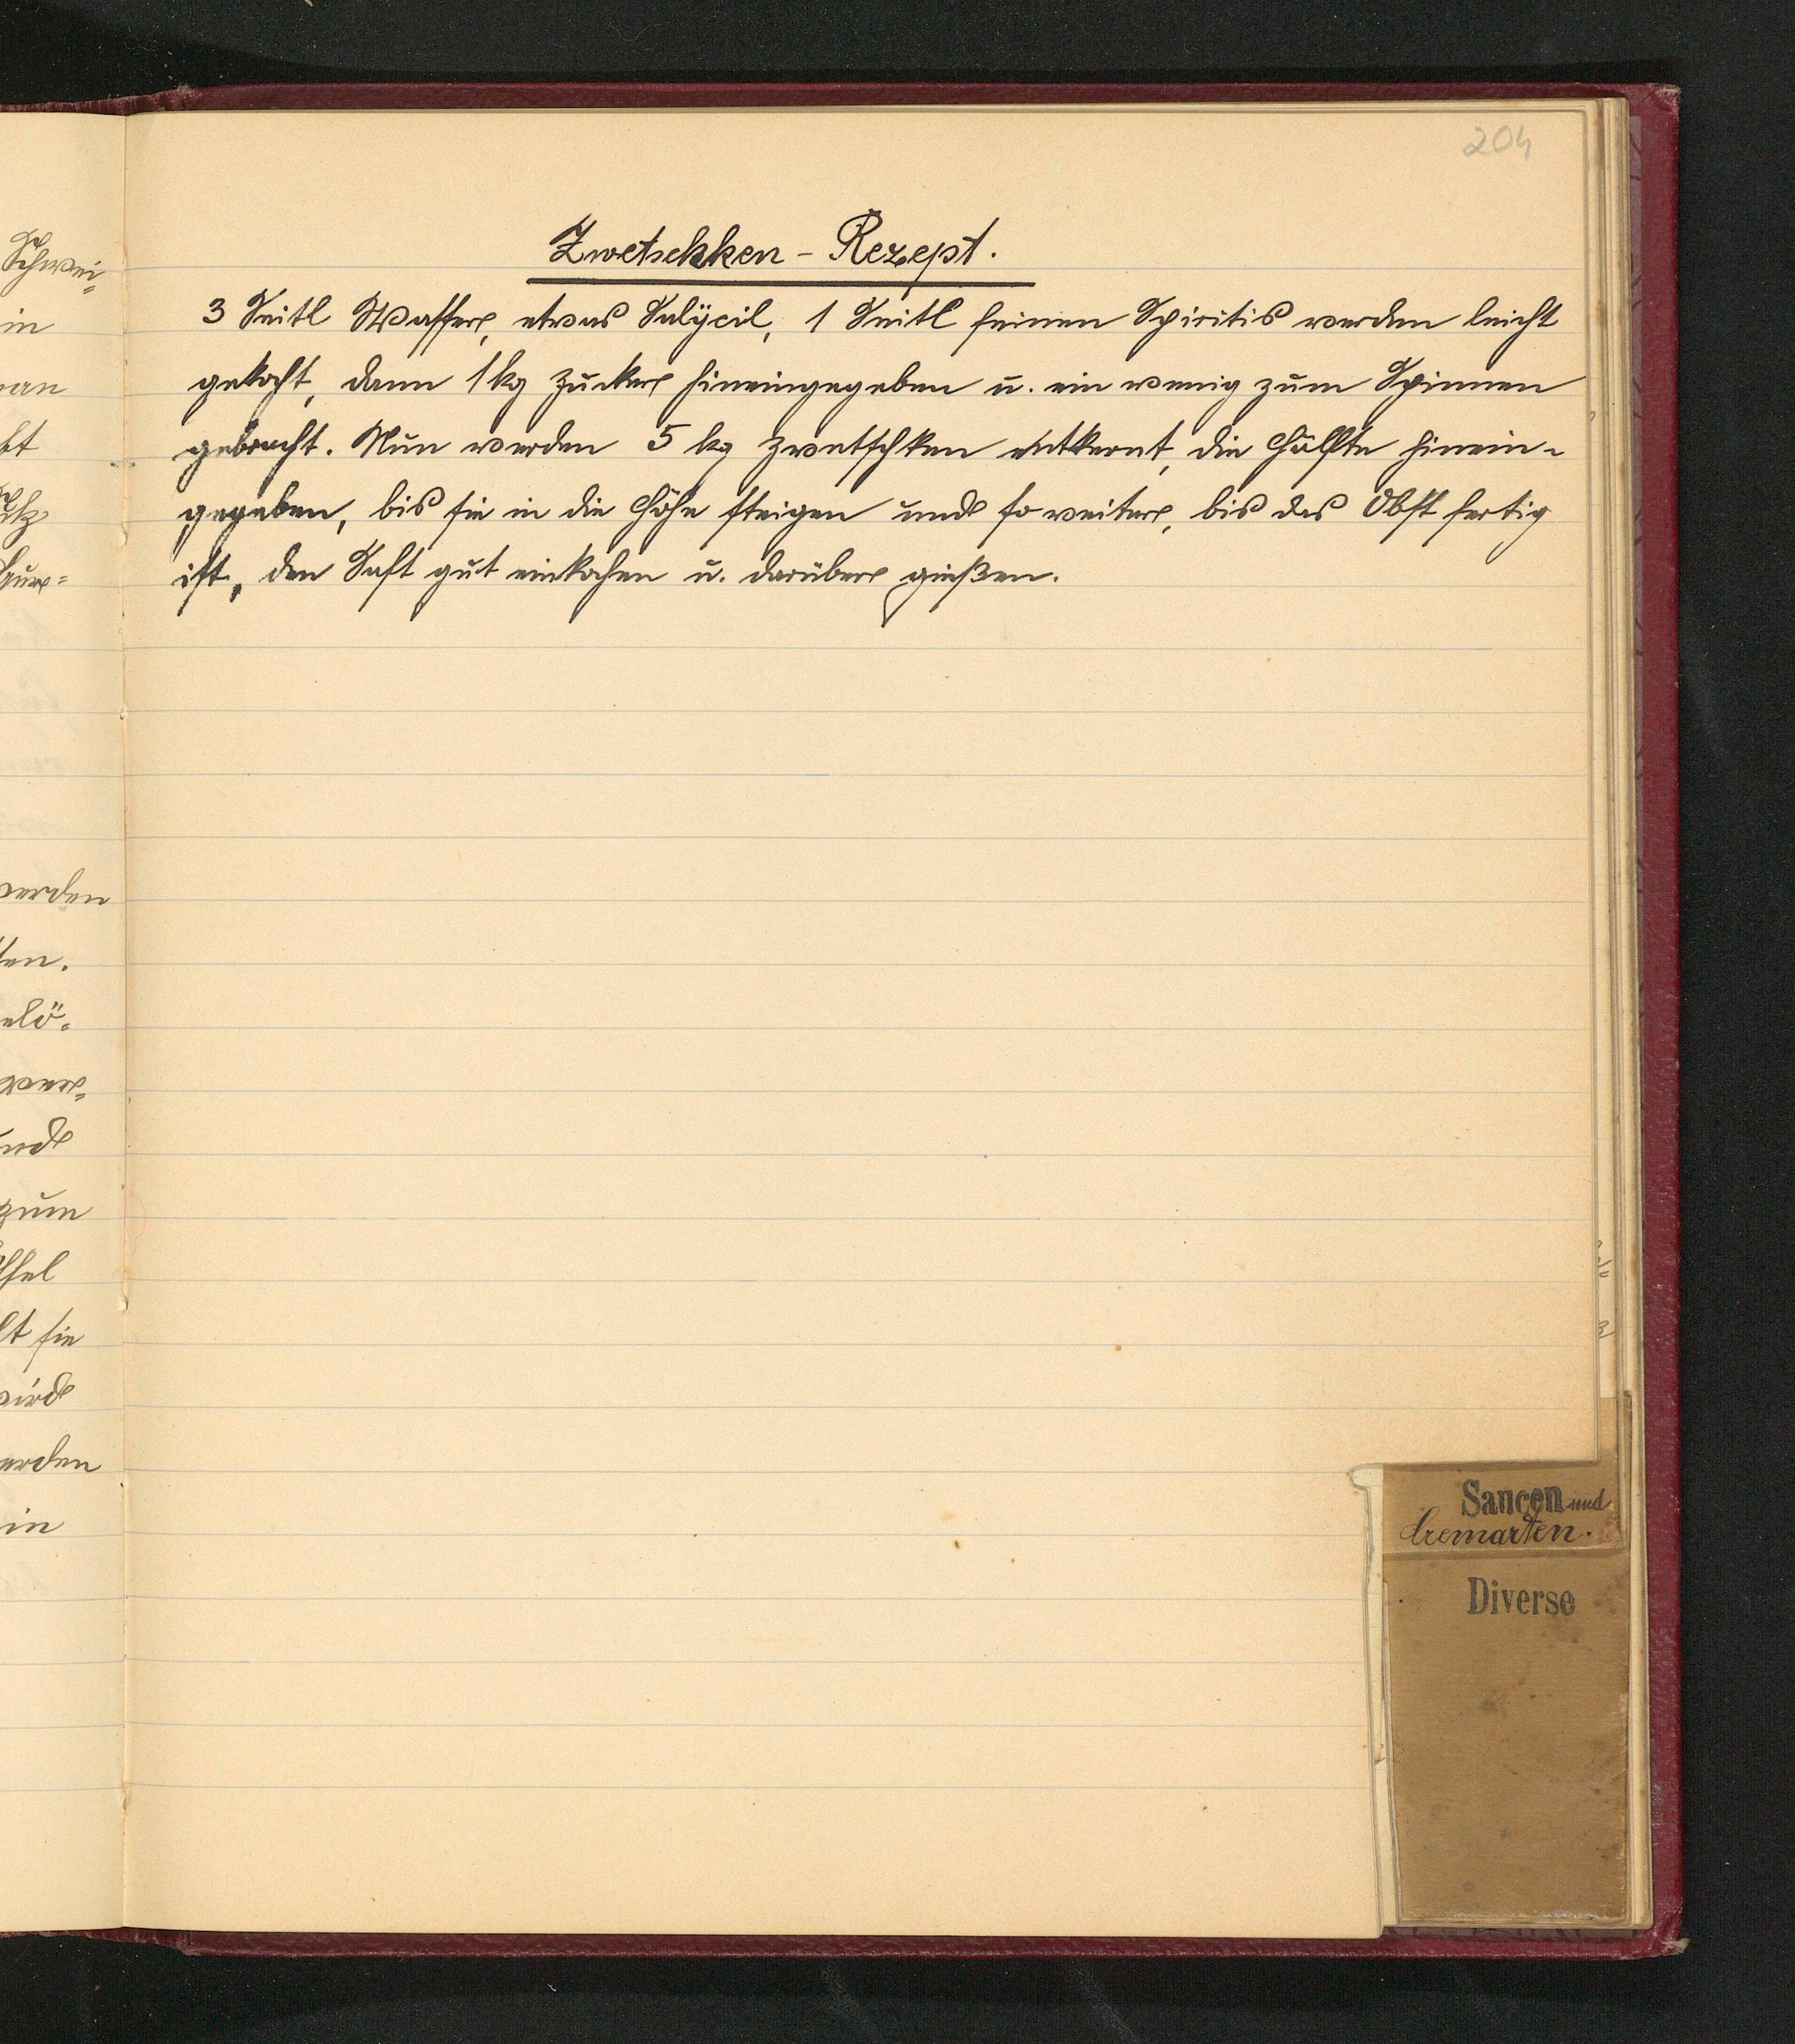 204
Schwei-
in
ut
werden
ten.
elö-
wer-
und
zum
fel
lt sie
wird
erden
in
Zwetschken - Rezept.
3 Seitl Wasser, etwas Salÿcil, 1 Seitl feinen Spiritis werden leicht
gekocht, dann 1 kg Zucker hineingegeben u. ein wenig zum Spinnen
gebracht. Nun werden 5 kg Zwetschken entkernt, die Hälfte hinein-
gegeben, bis sie in die Höhe steigen und so weiter, bis das Obst fertig
ist, den Saft gut einkochen u. darüber gießen.
Saucen und
Cremarten.
Diverse